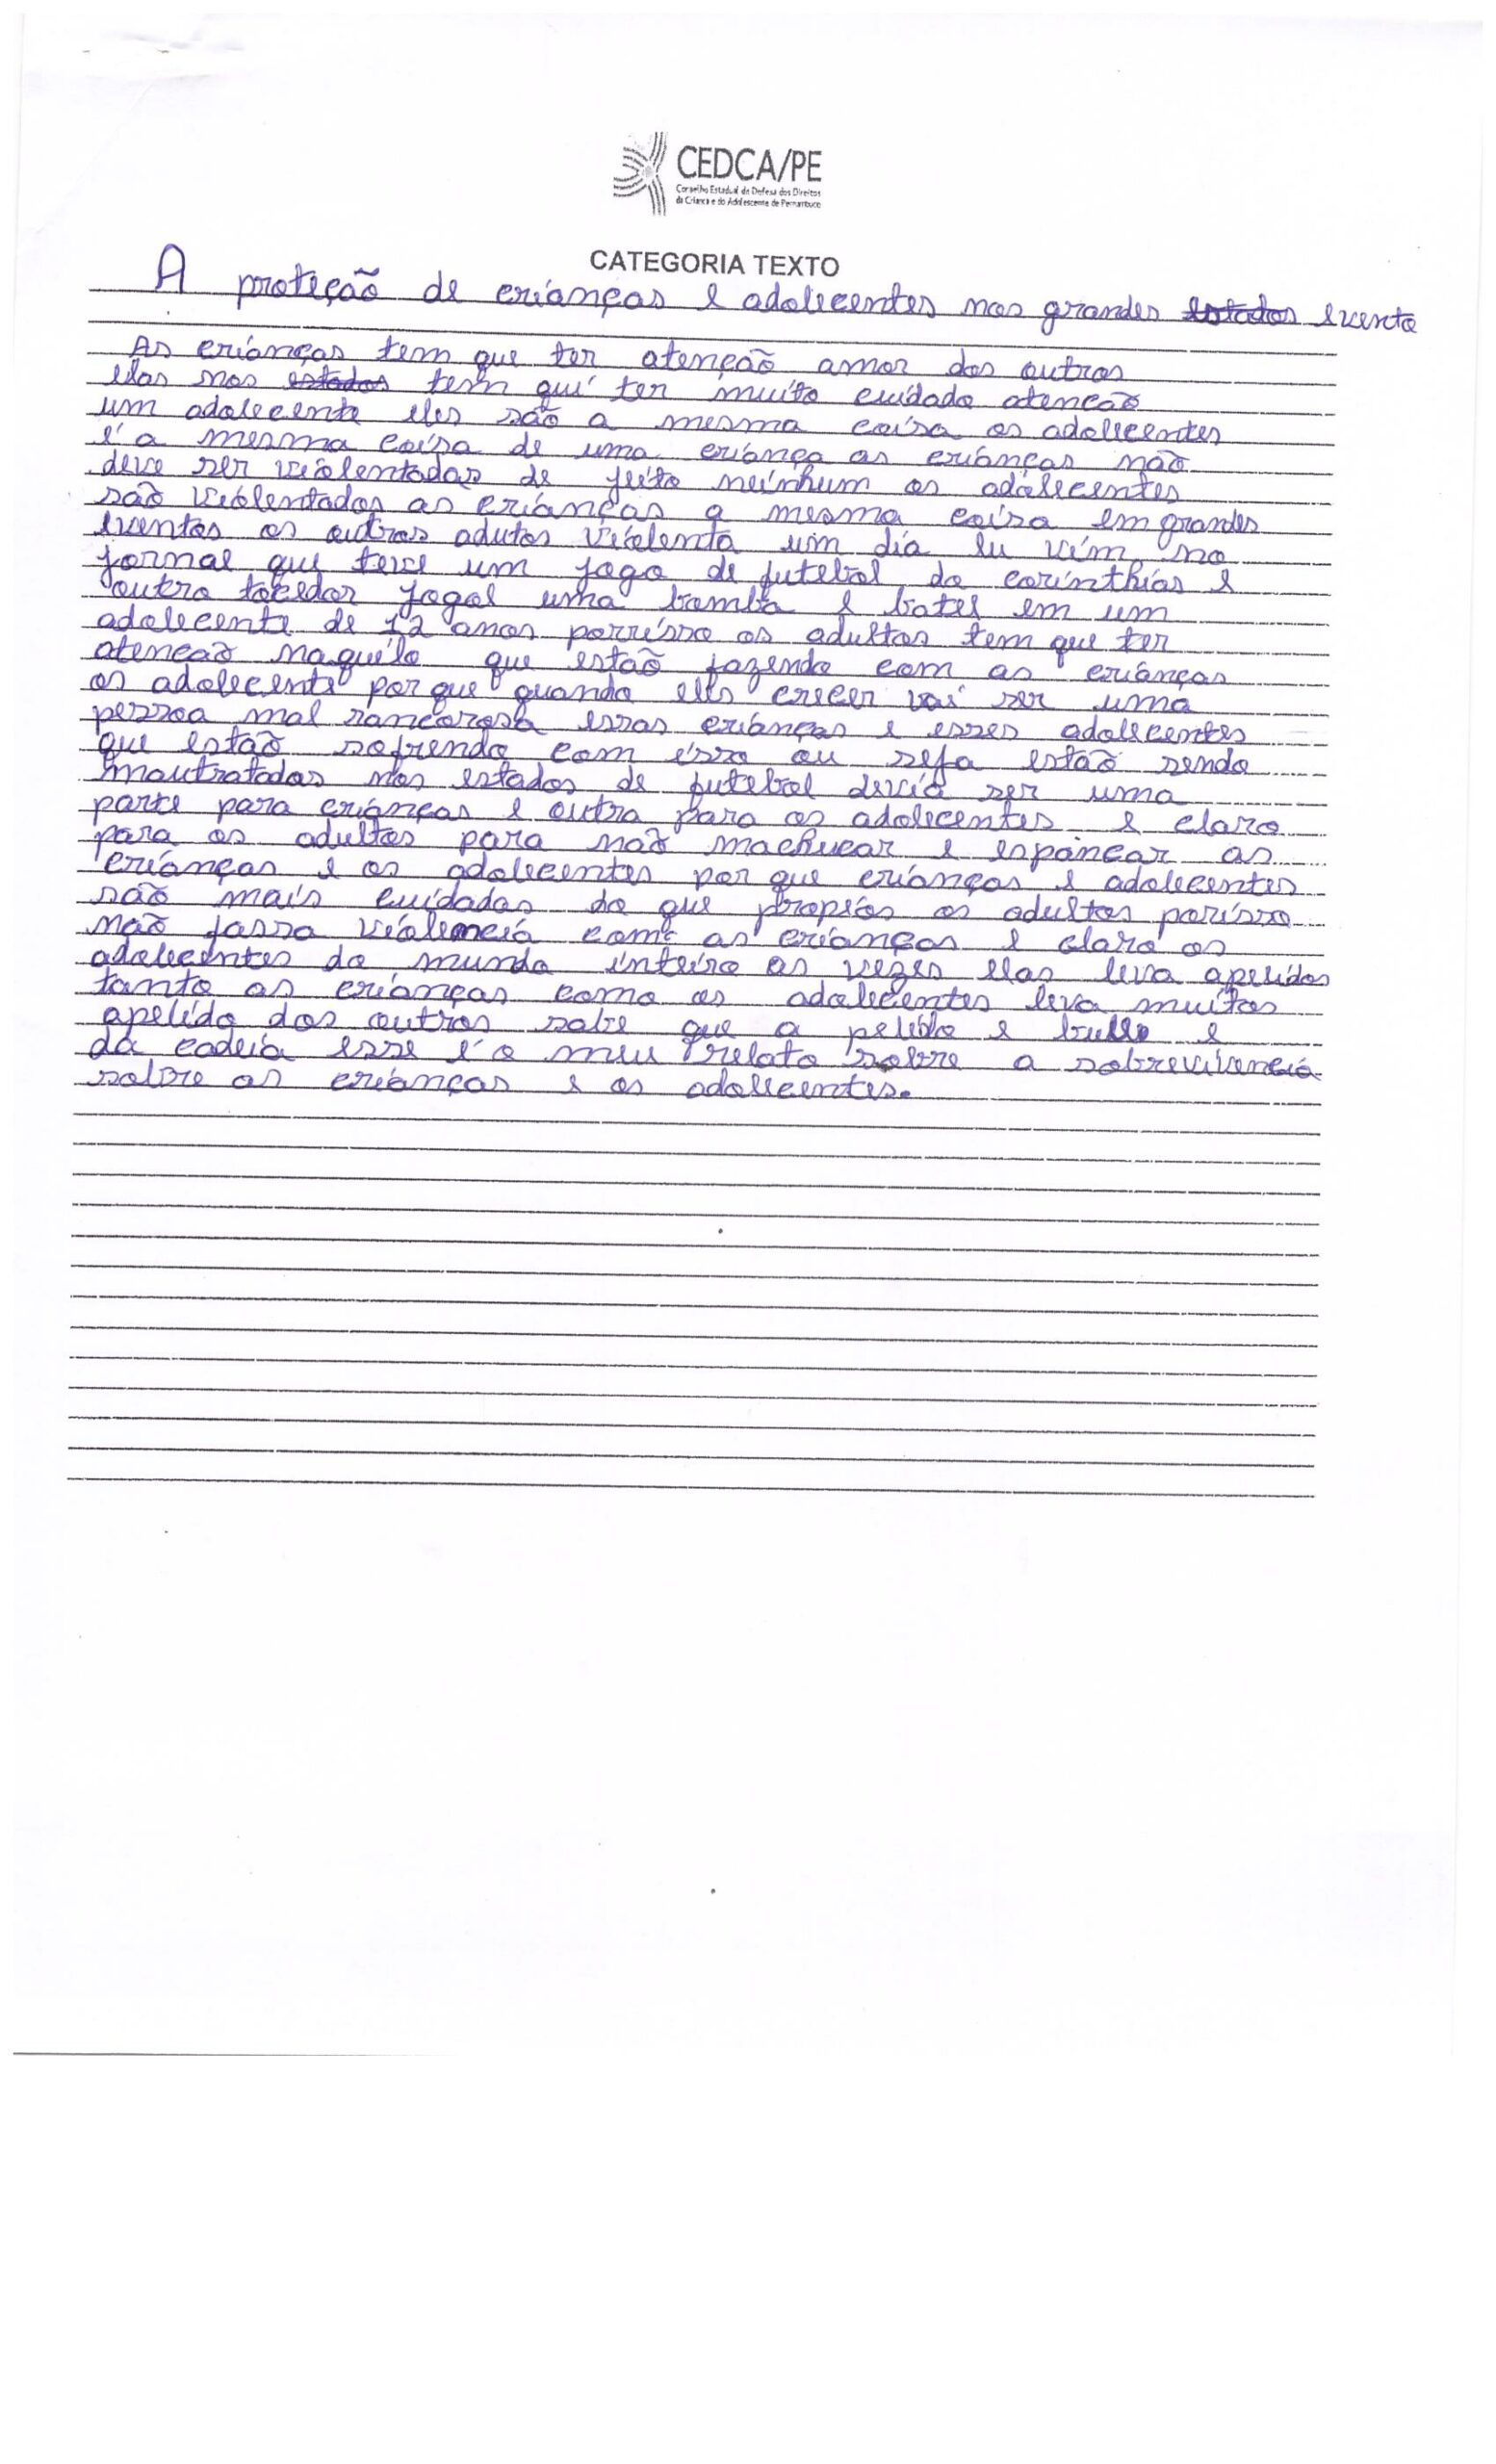 CEDCA/PE
Conselho Estadual de Defesa dos Direitos
da Criança e do Adolescente de Pernambuco
CATEGORIA TEXTO
A proteção de crianças e adolecentes nos grandes estados evento
As crianças tem que ter atenção amor dos outros
elas nos estados tem qui ter muito cuidado atencão
um adolecente eles são a mesma coisa os adolecentes
é a mesma coisa de uma criança as crianças não
deve ser violentadas de jeito neinhum os adolecentes
são violentados as crianças a mesma coisa em grandes
eventos os outros adutos violenta um dia eu vim no
jornal que teve um jogo de futebol do corinthias e
outro tocedor jogol uma bomba e batel em um
adolecente de 12 anos porrisso os adultos tem que ter
atencão naquilo que estão fazendo com as crianças
os adolecente por que quando eles crecer vai ser uma
pessoa mal rancorosa essas crianças e esses adolecentes
que estão sofrendo com isso ou seja estão sendo
mautratadas nos estados de futebol devia ser uma
parte para crianças e outra para os adolecentes e claro
para os adultos para não machucar e espancar as
crianças e os adolecentes por que crianças e adolecentes
são mais cuidados do que propios os adultos porisso
não fassa violencia com as crianças e claro os
adolecentes do mundo inteiro as vezes elas leva apelidos
tanto as crianças como os adolecentes leva muitos
apelido dos outros sabe que a pelido e bullo e
da cadeia esse é o meu relato sobre a sobrevivencia
sobre as crianças e os adolecentes.